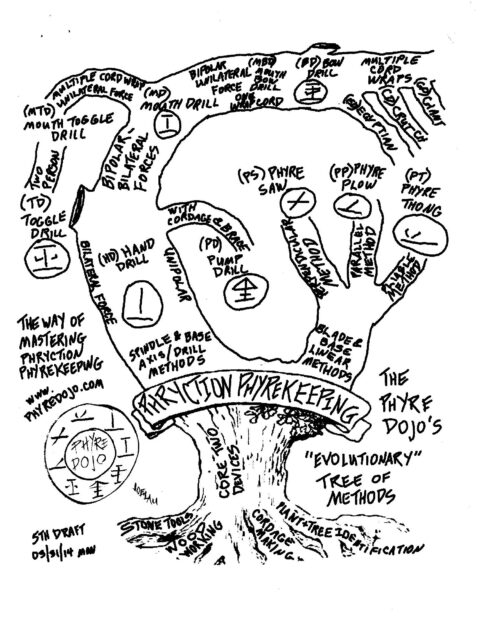 MULTIPLE CORD WRAP
UNILATERAL FORCE
(MTD)
MOUTH TOGGLE
DRILL
TWO
PERSON
(TD)
TOGGLE
DRILL
BIPOLAR-
BILATERAL
FORCES
(MD)
MOUTH DRILL
BIPOLAR
UNILATERAL
FORCE
ONE
WRAP CORD
(MBD)
MOUTH
BOW
DRILL
(BD) BOW
DRILL
MULTIPLE
CORD
WRAPS
(ED) EGYPTIAN
(CD) CRUTCH
(GD) GIANT
(PS) PHYRE
SAW
(PP) PHYRE
PLOW
(PT)
PHYRE
THONG
PERPENDICULAR
METHOD
PARALLEL
METHOD
PLIABLE
METHOD
WITH
CORDAGE & BRACE
(PD)
PUMP
DRILL
UNIPOLAR
BILATERAL FORCE
(HD) HAND
DRILL
SPINDLE & BASE
AXIS/DRILL
METHODS
BLADE &
BASE
LINEAR
METHODS
THE WAY OF
MASTERING
PHRYCTION
PHYREKEEPING
WWW.
PHYREDOJO.COM
PHYRE
DOJO
PHRYCTION PHYREKEEPING
THE
PHYRE
DOJO'S
"EVOLUTIONARY"
TREE OF
METHODS
CORE-TWO
DEVICES
STONE TOOLS
WOOD
WORKING
CORDAGE
MAKING
PLANT-TREE IDENTIFICATION
5TH DRAFT
03/31/14